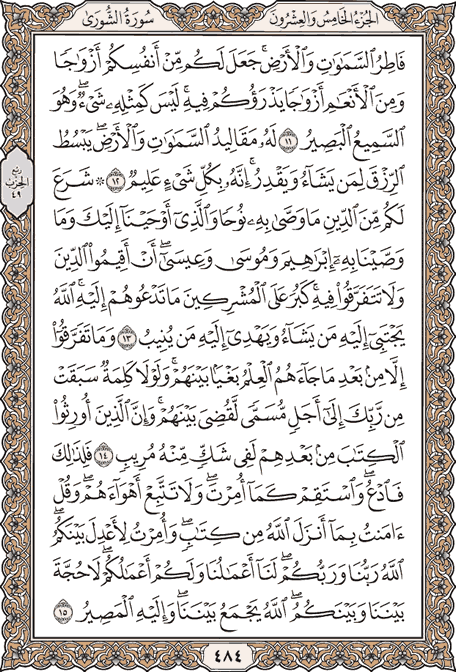 الجُزْءُ الخَامِسُ وَالعِشْرُونَ سُورَةُ الشُّورَىٰ
فَاطِرُ السَّمَٰوَٰتِ وَالْأَرْضِ ۚ جَعَلَ لَكُم مِّنْ أَنفُسِكُمْ أَزْوَٰجًا
وَمِنَ الْأَنْعَٰمِ أَزْوَٰجًا يَذْرَؤُكُمْ فِيهِ ۚ لَيْسَ كَمِثْلِهِۦ شَىْءٌ ۖ وَهُوَ
السَّمِيعُ الْبَصِيرُ ١١ لَهُۥ مَقَالِيدُ السَّمَٰوَٰتِ وَالْأَرْضِ ۖ يَبْسُطُ
الرِّزْقَ لِمَن يَشَآءُ وَيَقْدِرُ ۚ إِنَّهُۥ بِكُلِّ شَىْءٍ عَلِيمٌ ١٢ ۞ شَرَعَ
رُبْعُ
الحِزْبِ
٤٩
لَكُم مِّنَ الدِّينِ مَا وَصَّىٰ بِهِۦ نُوحًا وَالَّذِىٓ أَوْحَيْنَآ إِلَيْكَ وَمَا
وَصَّيْنَا بِهِۦٓ إِبْرَٰهِيمَ وَمُوسَىٰ وَعِيسَىٰٓ ۖ أَنْ أَقِيمُوا۟ الدِّينَ
وَلَا تَتَفَرَّقُوا۟ فِيهِ ۚ كَبُرَ عَلَى الْمُشْرِكِينَ مَا تَدْعُوهُمْ إِلَيْهِ ۚ اللَّهُ
يَجْتَبِىٓ إِلَيْهِ مَن يَشَآءُ وَيَهْدِىٓ إِلَيْهِ مَن يُنِيبُ ١٣ وَمَا تَفَرَّقُوٓا۟
إِلَّا مِنۢ بَعْدِ مَا جَآءَهُمُ الْعِلْمُ بَغْيًۢا بَيْنَهُمْ ۚ وَلَوْلَا كَلِمَةٌ سَبَقَتْ
مِن رَّبِّكَ إِلَىٰٓ أَجَلٍ مُّسَمًّى لَّقُضِىَ بَيْنَهُمْ ۚ وَإِنَّ الَّذِينَ أُورِثُوا۟
الْكِتَٰبَ مِنۢ بَعْدِهِمْ لَفِى شَكٍّ مِّنْهُ مُرِيبٍ ١٤ فَلِذَٰلِكَ
فَادْعُ ۖ وَاسْتَقِمْ كَمَآ أُمِرْتَ ۖ وَلَا تَتَّبِعْ أَهْوَآءَهُمْ ۖ وَقُلْ
ءَامَنتُ بِمَآ أَنزَلَ اللَّهُ مِن كِتَٰبٍ ۖ وَأُمِرْتُ لِأَعْدِلَ بَيْنَكُمُ ۖ
اللَّهُ رَبُّنَا وَرَبُّكُمْ ۖ لَنَآ أَعْمَٰلُنَا وَلَكُمْ أَعْمَٰلُكُمْ ۖ لَا حُجَّةَ
بَيْنَنَا وَبَيْنَكُمُ ۖ اللَّهُ يَجْمَعُ بَيْنَنَا ۖ وَإِلَيْهِ الْمَصِيرُ ١٥
٤٨٤